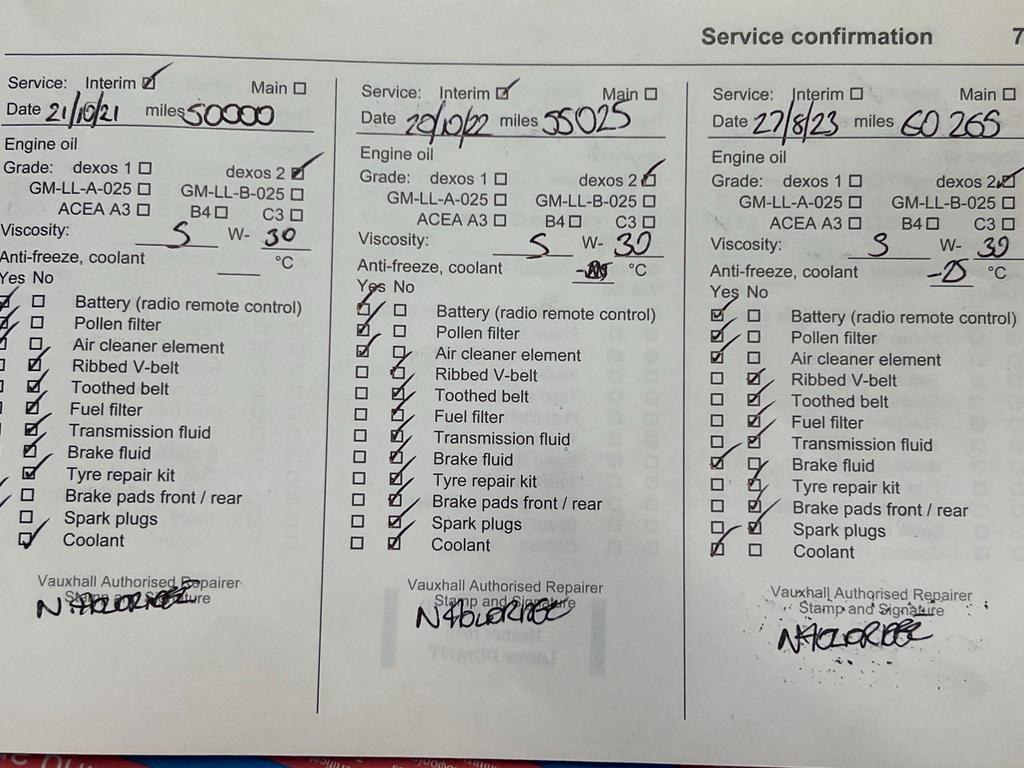 Service confirmation 7
Service: Interim Main
Date 21/10/21 miles 50000
Engine oil
Grade: dexos 1 dexos 2
GM-LL-A-025 GM-LL-B-025
ACEA A3 B4 C3
Viscosity: 5 W- 30
Anti-freeze, coolant °C
Yes No
Battery (radio remote control)
Pollen filter
Air cleaner element
Ribbed V-belt
Toothed belt
Fuel filter
Transmission fluid
Brake fluid
Tyre repair kit
Brake pads front / rear
Spark plugs
Coolant
Vauxhall Authorised Repairer
Stamp and Signature
Service: Interim Main
Date 20/10/22 miles 55025
Engine oil
Grade: dexos 1 dexos 2
GM-LL-A-025 GM-LL-B-025
ACEA A3 B4 C3
Viscosity: 5 W- 30
Anti-freeze, coolant °C
Yes No
Battery (radio remote control)
Pollen filter
Air cleaner element
Ribbed V-belt
Toothed belt
Fuel filter
Transmission fluid
Brake fluid
Tyre repair kit
Brake pads front / rear
Spark plugs
Coolant
Vauxhall Authorised Repairer
Stamp and Signature
Service: Interim Main
Date 27/8/23 miles 60265
Engine oil
Grade: dexos 1 dexos 2
GM-LL-A-025 GM-LL-B-025
ACEA A3 B4 C3
Viscosity: 5 W- 30
Anti-freeze, coolant -25 °C
Yes No
Battery (radio remote control)
Pollen filter
Air cleaner element
Ribbed V-belt
Toothed belt
Fuel filter
Transmission fluid
Brake fluid
Tyre repair kit
Brake pads front / rear
Spark plugs
Coolant
Vauxhall Authorised Repairer
Stamp and Signature